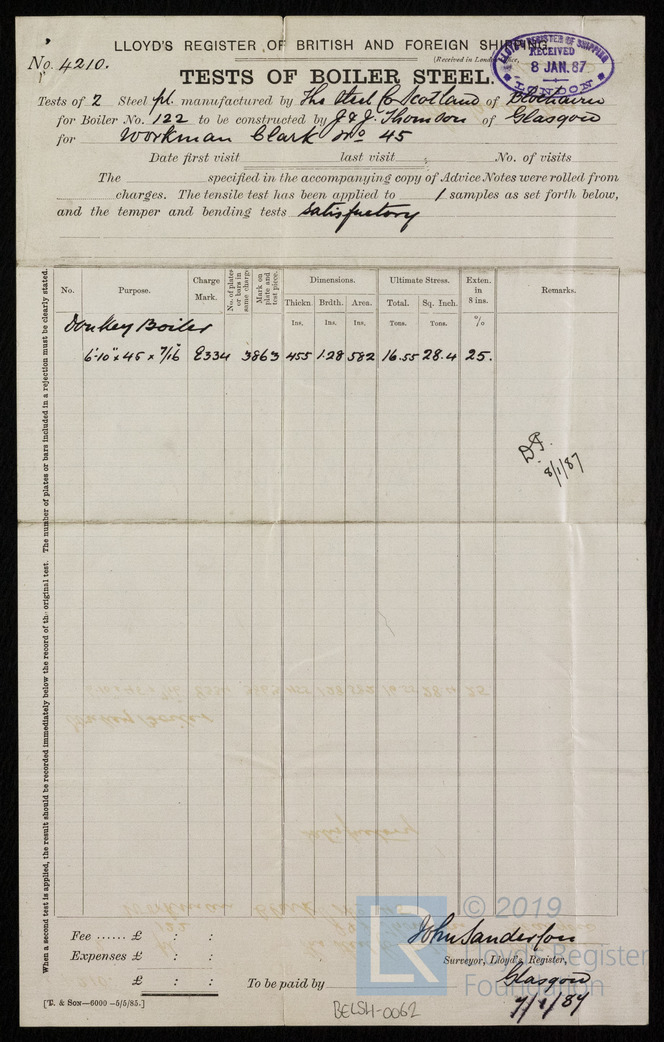 LLOYD'S REGISTER OF BRITISH AND FOREIGN SHIPPING
LLOYD'S REGISTER OF SHIPPING
RECEIVED
8 JAN. 87
LONDON
No. 4210.
(Received in London Office,
TESTS OF BOILER STEEL.
Tests of 2 Steel pl. manufactured by The Steel Co Scotland of Blochairn
for Boiler No. 122 to be constructed by J & J. Thomson of Glasgow
for Workman Clark No 45
Date first visit last visit ; No. of visits
The specified in the accompanying copy of Advice Notes were rolled from
charges. The tensile test has been applied to 1 samples as set forth below,
and the temper and bending tests satisfactory
When a second test is applied, the result should be recorded immediately below the record of the original test. The number of plates or bars included in a rejection must be clearly stated.
No. Purpose. Charge Mark. No. of plates or bars in same charge Mark on plate and test piece. Dimensions. Ultimate Stress. Exten. in 8 ins. Remarks.
Thickn Brdth. Area. Total. Sq. Inch.
Ins. Ins. Ins. Tons. Tons. %
Donkey Boiler
6'-10" x 45 x 7/16" E334 3863 455 1.28 582 16.55 28.4 25.
8/1/87
Fee ...... £ : :
Expenses £ : :
£ : :
John Sanderson
Surveyor, Lloyd's Register,
To be paid by Glasgow
7/1/87
[T. & SON—6000 –5/5/85.]
BELSH-0062
LR
© 2019
Lloyd's Register
Foundation